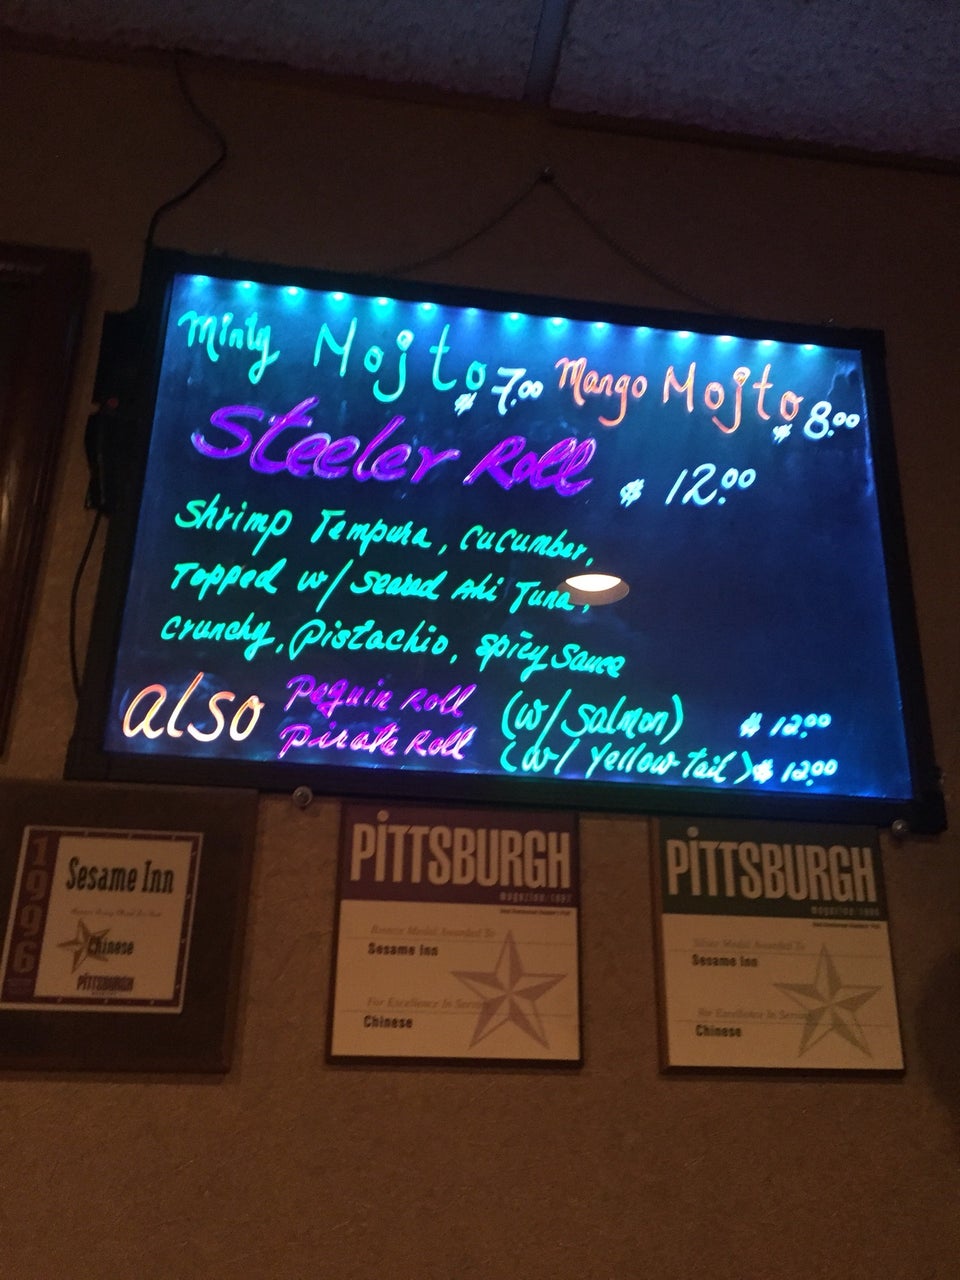 Minty Mojto $ 7.00 Mango Mojto $ 8.00
Steeler Roll $ 12.00
Shrimp Tempura, cucumber,
Topped w/ Seared Ahi Tuna,
crunchy, Pistachio, spicy Sauce
also Peguin Roll (w/ Salmon) $ 12.00
Pirate Roll (w/ Yellow tail) $ 12.00
1996
Sesame Inn
Chinese
PITTSBURGH
PITTSBURGH
magazine/1997
Bronze Medal Awarded To
Sesame Inn
For Excellence In Serving
Chinese
PITTSBURGH
Silver Medal Awarded To
Sesame Inn
For Excellence In Serving
Chinese